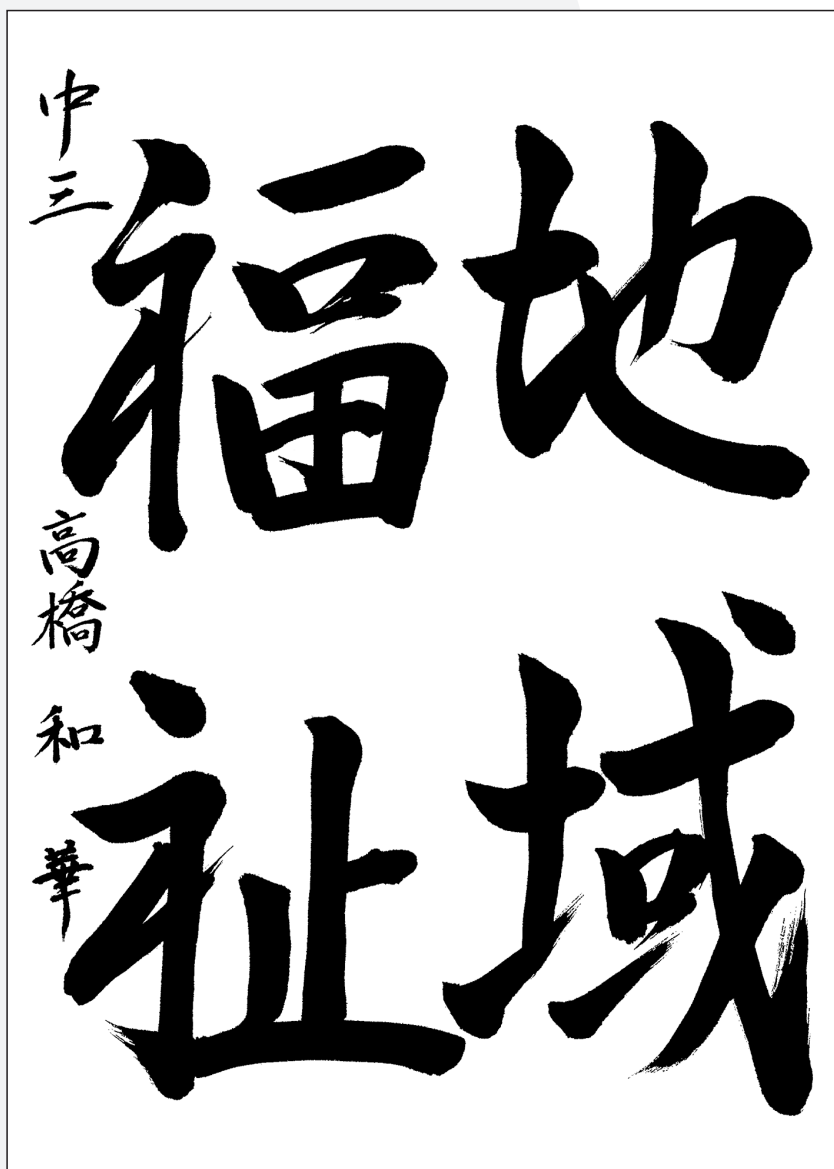 地域
福祉
中三 高橋和華